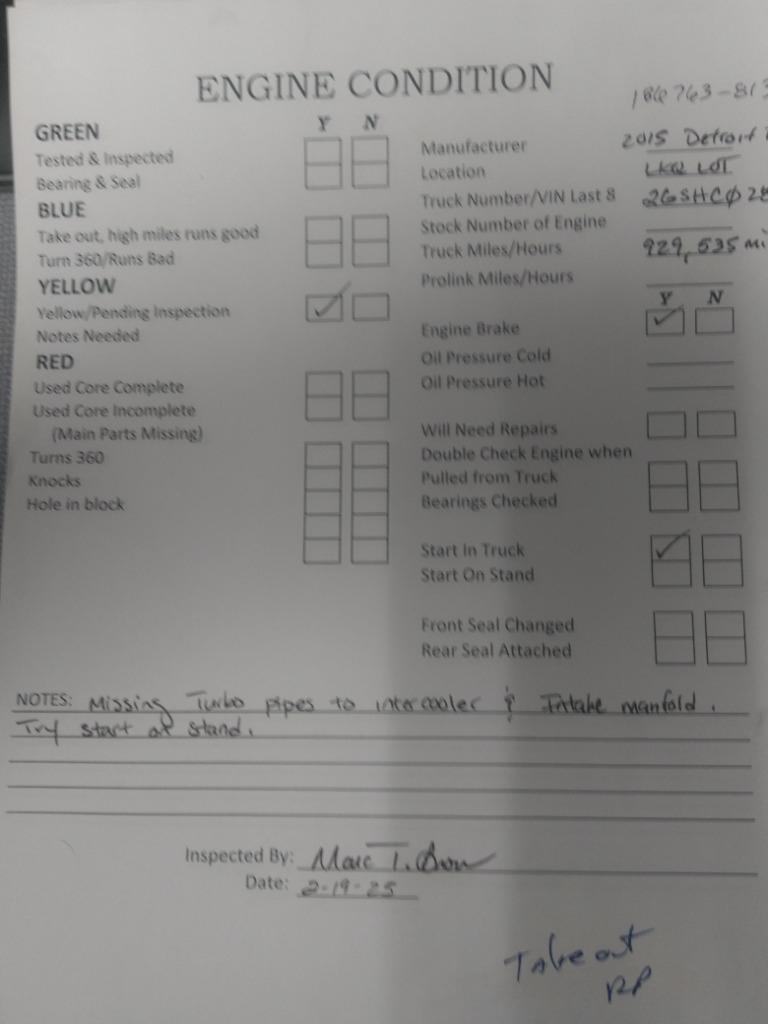 ENGINE CONDITION
186763-813
GREEN Y N
Tested & Inspected
Bearing & Seal
BLUE
Take out, high miles runs good
Turn 360/Runs Bad
YELLOW
Yellow/Pending Inspection
Notes Needed
RED
Used Core Complete
Used Core Incomplete
(Main Parts Missing)
Turns 360
Knocks
Hole in block
Manufacturer 2015 Detroit
Location LKQ LOT
Truck Number/VIN Last 8
Stock Number of Engine
Truck Miles/Hours 929,535 mi
Prolink Miles/Hours
Y N
Engine Brake
Oil Pressure Cold
Oil Pressure Hot
Will Need Repairs
Double Check Engine when
Pulled from Truck
Bearings Checked
Start In Truck
Start On Stand
Front Seal Changed
Rear Seal Attached
NOTES: Missing Turbo pipes to intercooler & Intake manfold.
Try start at stand.
Inspected By: Marc T.
Date: 2-19-25
Take out
RP